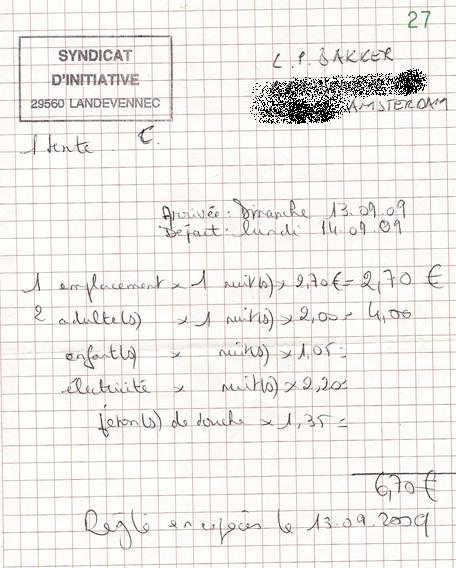 27
SYNDICAT
D'INITIATIVE
29560 LANDEVENNEC
L.P. BAKKER
AMSTERDAM
1 tente. C.
Arrivée: Dimanche 13.09.09
Départ: lundi 14.09.09
1 emplacement x 1 nuit(s) x 2,70€ = 2,70 €
2 adulte(s) x 1 nuit(s) x 2,00 = 4,00
enfant(s) x nuit(s) x 1,05 =
électricité x nuit(s) x 2,20 =
jeton(s) de douche x 1,35 =
6,70 €
Réglé en espèces le 13.09.2009